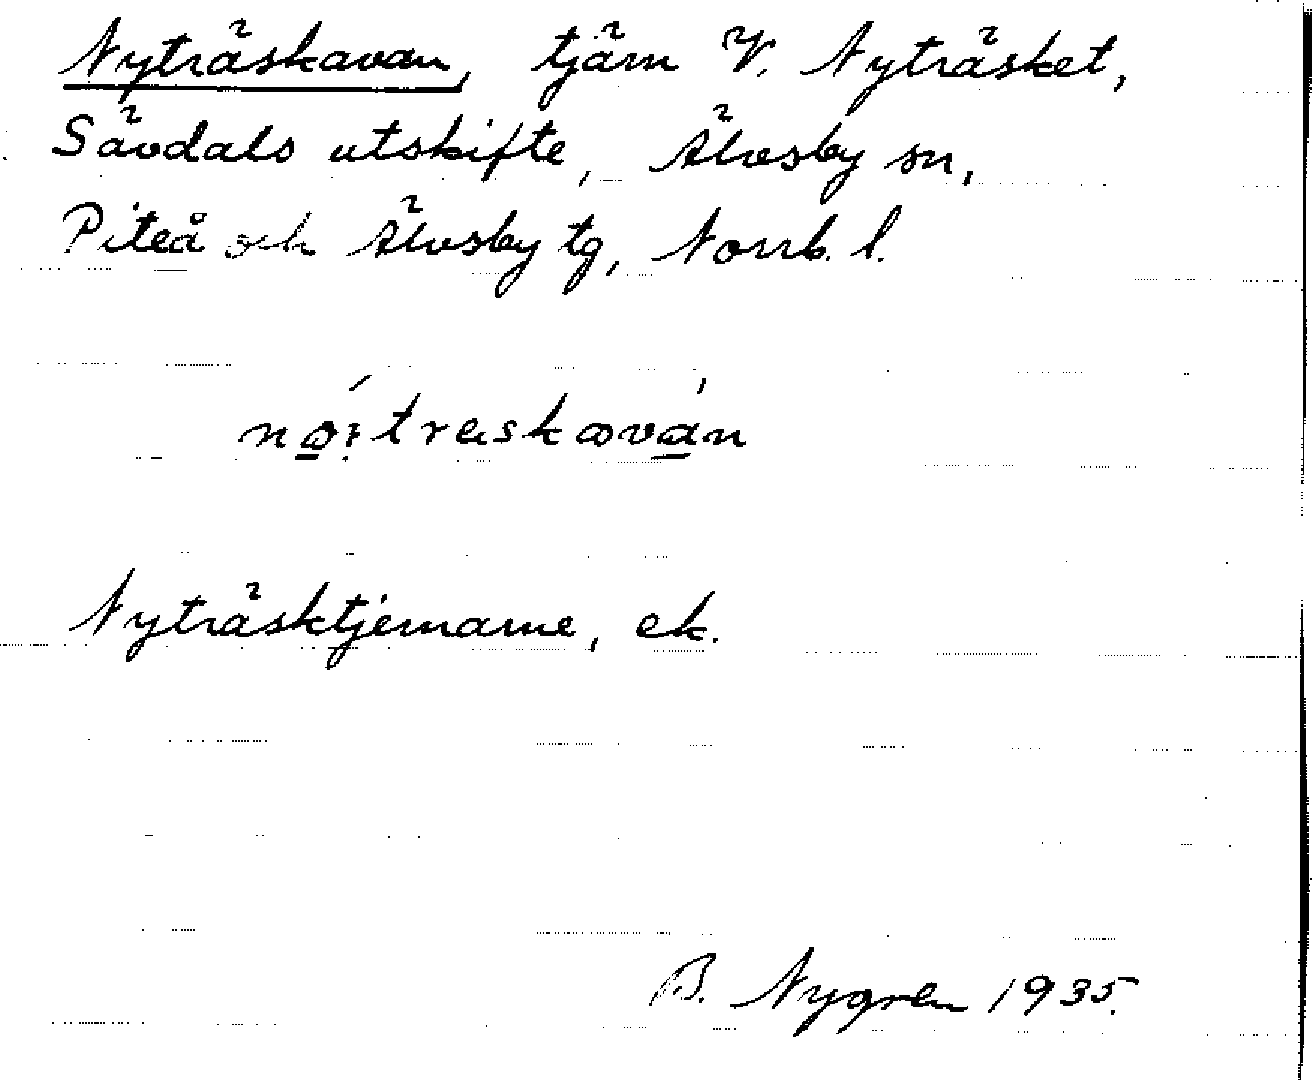 Nyträskavan, tjärn V. Nyträsket,
Sävdals utskifte, Älvsby sn,
Piteå och Älvsby tg, Norrb. l.
Nyträsktjernarne, ek.
B. Nygren 1935.